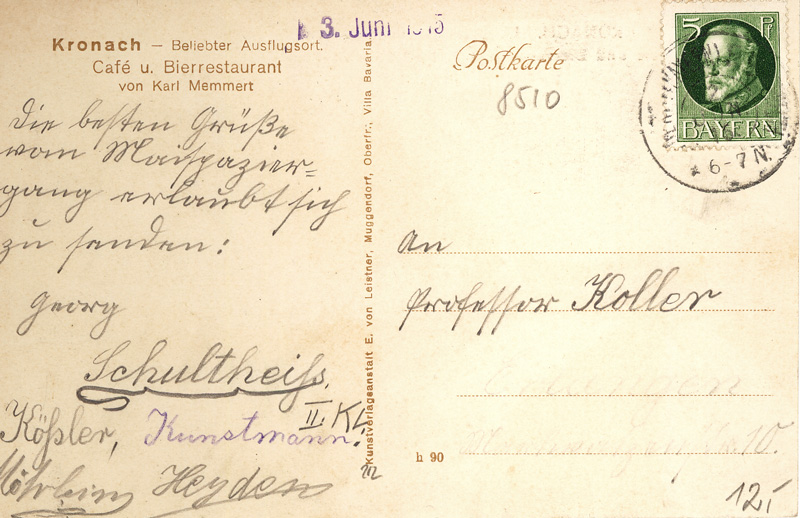 3. Juni 1915
Kronach – Beliebter Ausflugsort.
Café u. Bierrestaurant
von Karl Memmert
Die besten Grüße
vom Maispazier=
gang erlaubt sich
zu senden:
Georg
Schultheiß.
II. Kl.
Kößler, Kunstmann.
Heyden
Kunstverlagsanstalt E. von Leistner, Muggendorf, Oberfr., Villa Bavaria
Postkarte
8510
5 Pf
BAYERN
6-7 N.
An
Professor Koller
Erlangen
10.
h 90
12,-